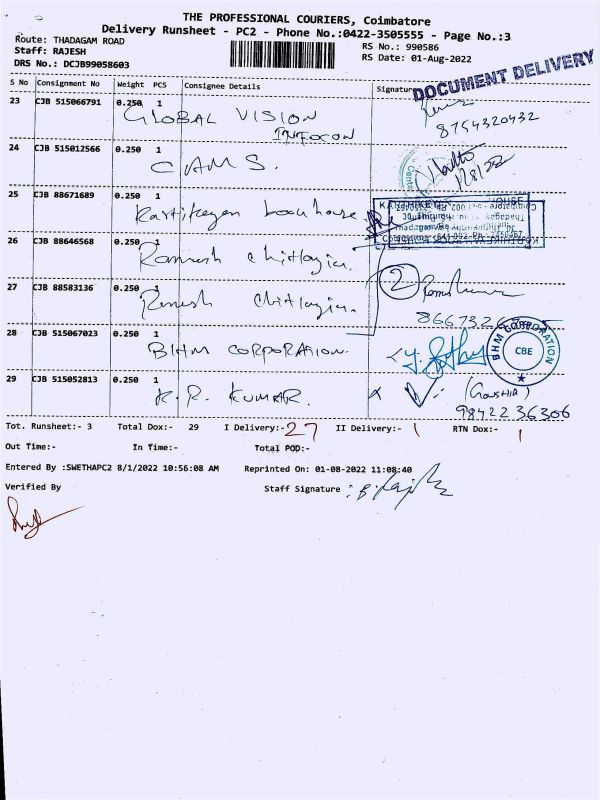 THE PROFESSIONAL COURIERS, Coimbatore
Delivery Runsheet - PC2 - Phone No.:0422-3505555 - Page No.:3
Route: THADAGAM ROAD
Staff: RAJESH
DRS No.: DCJB99058603
RS No.: 990586
RS Date: 01-Aug-2022
DOCUMENT DELIVERY
S No Consignment No Weight PCS Consignee Details Signature
23 CJB 515066791 0.250 1
GLOBAL VISION
INFOCON
8754320432
24 CJB 515012566 0.250 1
CAMS.
1/8/22
25 CJB 88671689 0.250 1
Kartikeyan Loouhouse
26 CJB 88646568 0.250 1
Ramesh Chitlagia.
27 CJB 88583136 0.250 1
Ramesh Chitlagia.
2
28 CJB 515067023 0.250 1
BHM CORPORATION.
BHM CORPORATION
CBE
29 CJB 515052813 0.250 1
K.R. KUMAR.
9842236306
Tot. Runsheet:- 3 Total Dox:- 29 I Delivery:- 27 II Delivery:- 1 RTN Dox:- 1
Out Time:- In Time:- Total POD:-
Entered By :SWETHAPC2 8/1/2022 10:56:08 AM Reprinted On: 01-08-2022 11:08:40
Verified By Staff Signature :